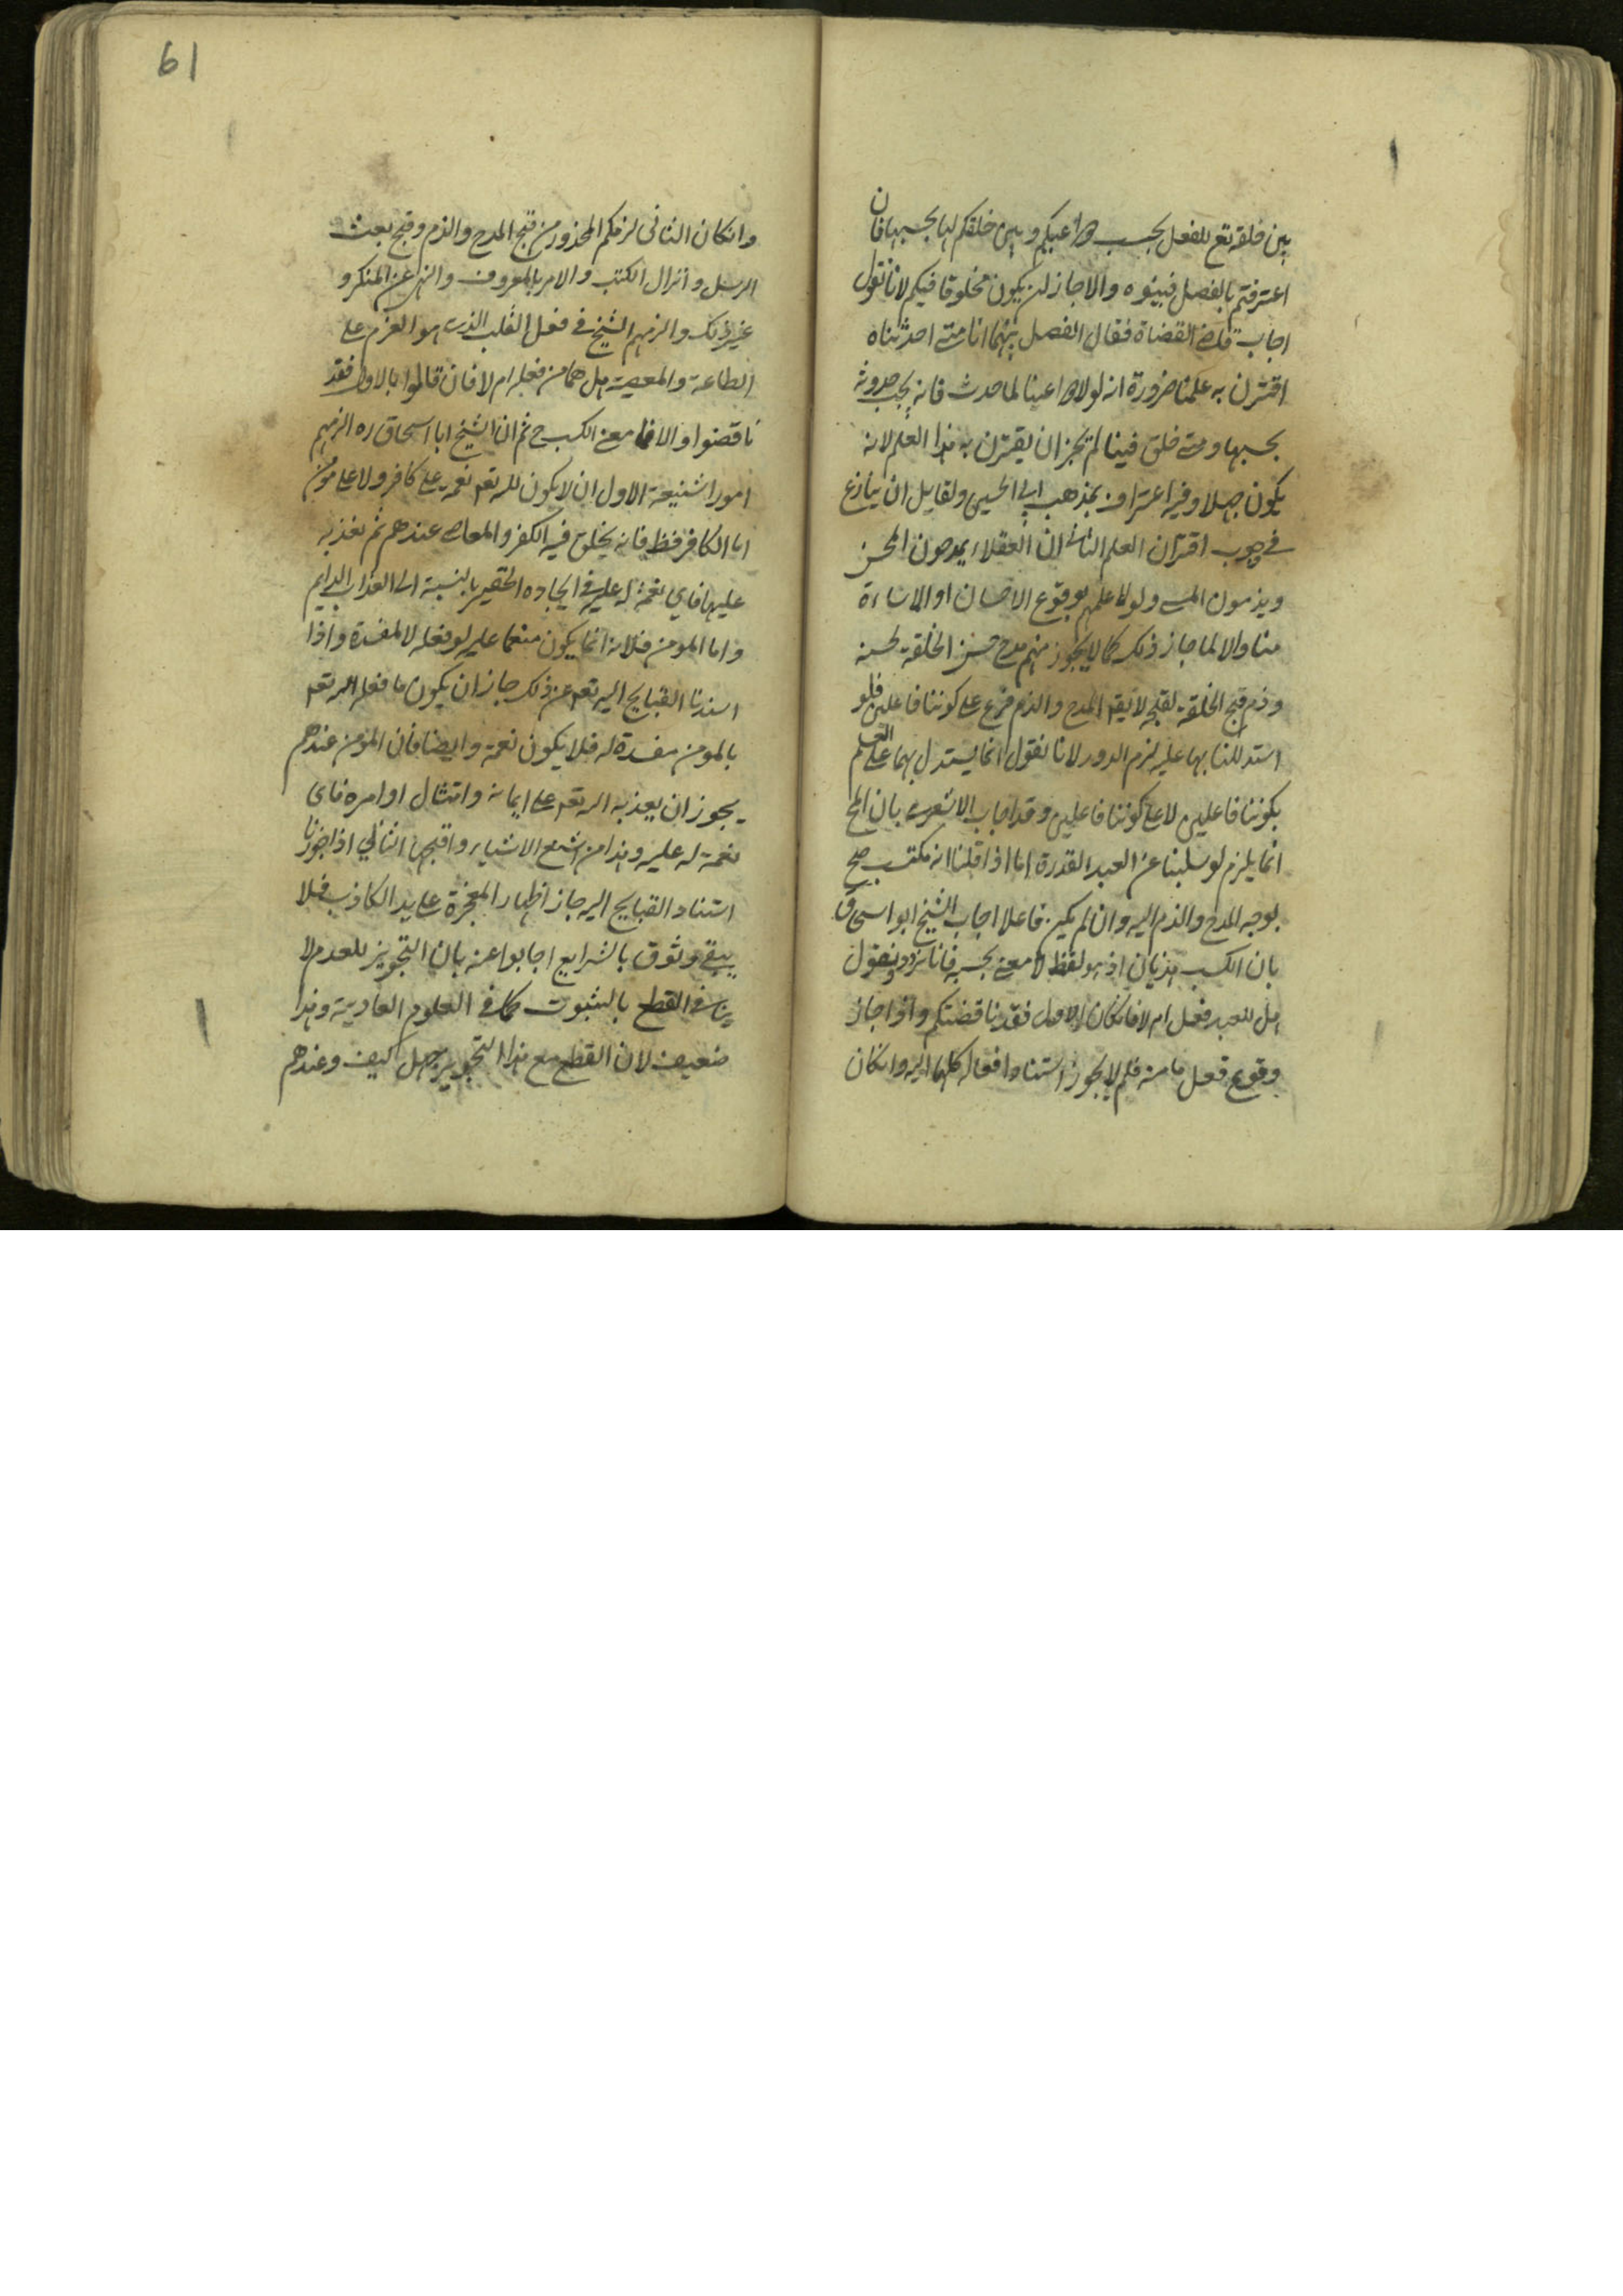 بين خلقه تع للفعل بحسب دواعيكم وبين خلقكم لها بحسبها فان
اعترفتم بالفصل فبينوه والا جاز ان يكون مخلوقا فيكم لانا نقول
اجاب قاضى القضاة فقال الفصل بينهما انا متى احدثناه
اقترن به علمنا ضرورة انه لولا دواعينا لما حدث فانه يجب حدوثه
بحسبها ومتى خلق فينا لم يجز ان يقترن به هذا العلم لانه
يكون جهلا وفيه اعتراف بمذهب ابى الحسين ولقايل ان ينازع
فى وجوب اقتران العلم الثانى ان العقلاء يمدحون المحسن
ويذمون المسى ولولا علمهم بوقوع الاحسان او الاساءة
منا والا لما جاز ذلك كما لا يجوز منهم مدح حسن الخلقة لحسنه
وذم قبيح الخلقة لقبحه لا يقه المدح والذم فرع على كوننا فاعلين فلو
استدللنا بهما عليه لزم الدور لانا نقول انما يستدل بهما على العلم
بكوننا فاعلين لا على كوننا فاعلين وقد اجاب الاشعرى بان المح
انما يلزم لو سلبنا عن العبد القدرة اما اذا قلنا انه مكتسب صح
توجه المدح والذم اليه وان لم يكن فاعلا اجاب الشيخ ابو اسحاق
بان الكسب هذيان اذ هو لفظ لا معنى بحسبه فانا نردد ونقول
هل للعبد فعل ام لا فان كان الاول فقد ناقضتكم واذا جاز
وقوع فعل ما منه فلم لا يجوز استناد افعاله كلها اليه وانكان
61
وانكان الثانى لزمكم المحذور من قبح المدح والذم وقبح بعث
الرسل وانزال الكتب والامر بالمعروف والنهى عن المنكر و
غير ذلك والزمهم الشيخ فى فعل القلب الذى هو العزم على
الطاعة والمعصية هل هما من فعله ام لا فان قالوا بالاول فقد
ناقضوا والا فما معنى الكسب ح ثم ان الشيخ ابا اسحاق ره الزمهم
امورا شنيعة الاول ان لا يكون لله تعه نعمة على كافر ولا على مؤمن
اما الكافر فظ فانه يخلق فيه الكفر والمعاصى عندهم ثم يعذبه
عليها فاى نعمة له عليه فى ايجاده الحقير بالنسبة الى العذاب الدايم
واما المومن فلانه انما يكون منعما عليه لو فعله لا لمفسدة واذا
اسندنا القبايح اليه تعه عن ذلك جاز ان يكون ما فعله الله تعه
بالمومن مفسدة له فلا يكون نعمة وايضا فان المؤمن عندهم
يجوز ان يعذبه الله تعه على ايمانه وامتثال اوامره فاى
نعمة له عليه وهذا من اشنع الاشياء واقبحها الثانى اذا جوزنا
استناد القبايح اليه جاز اظهار المعجزة على يد الكاذب فلا
يبقى وثوق بالشرايع اجابوا عنه بان التجويز للعدم لا
ينافى القطع بالثبوت كما فى العلوم العادية وهذا
ضعيف لان القطع مع هذا التجويز جهل كيف وعندهم